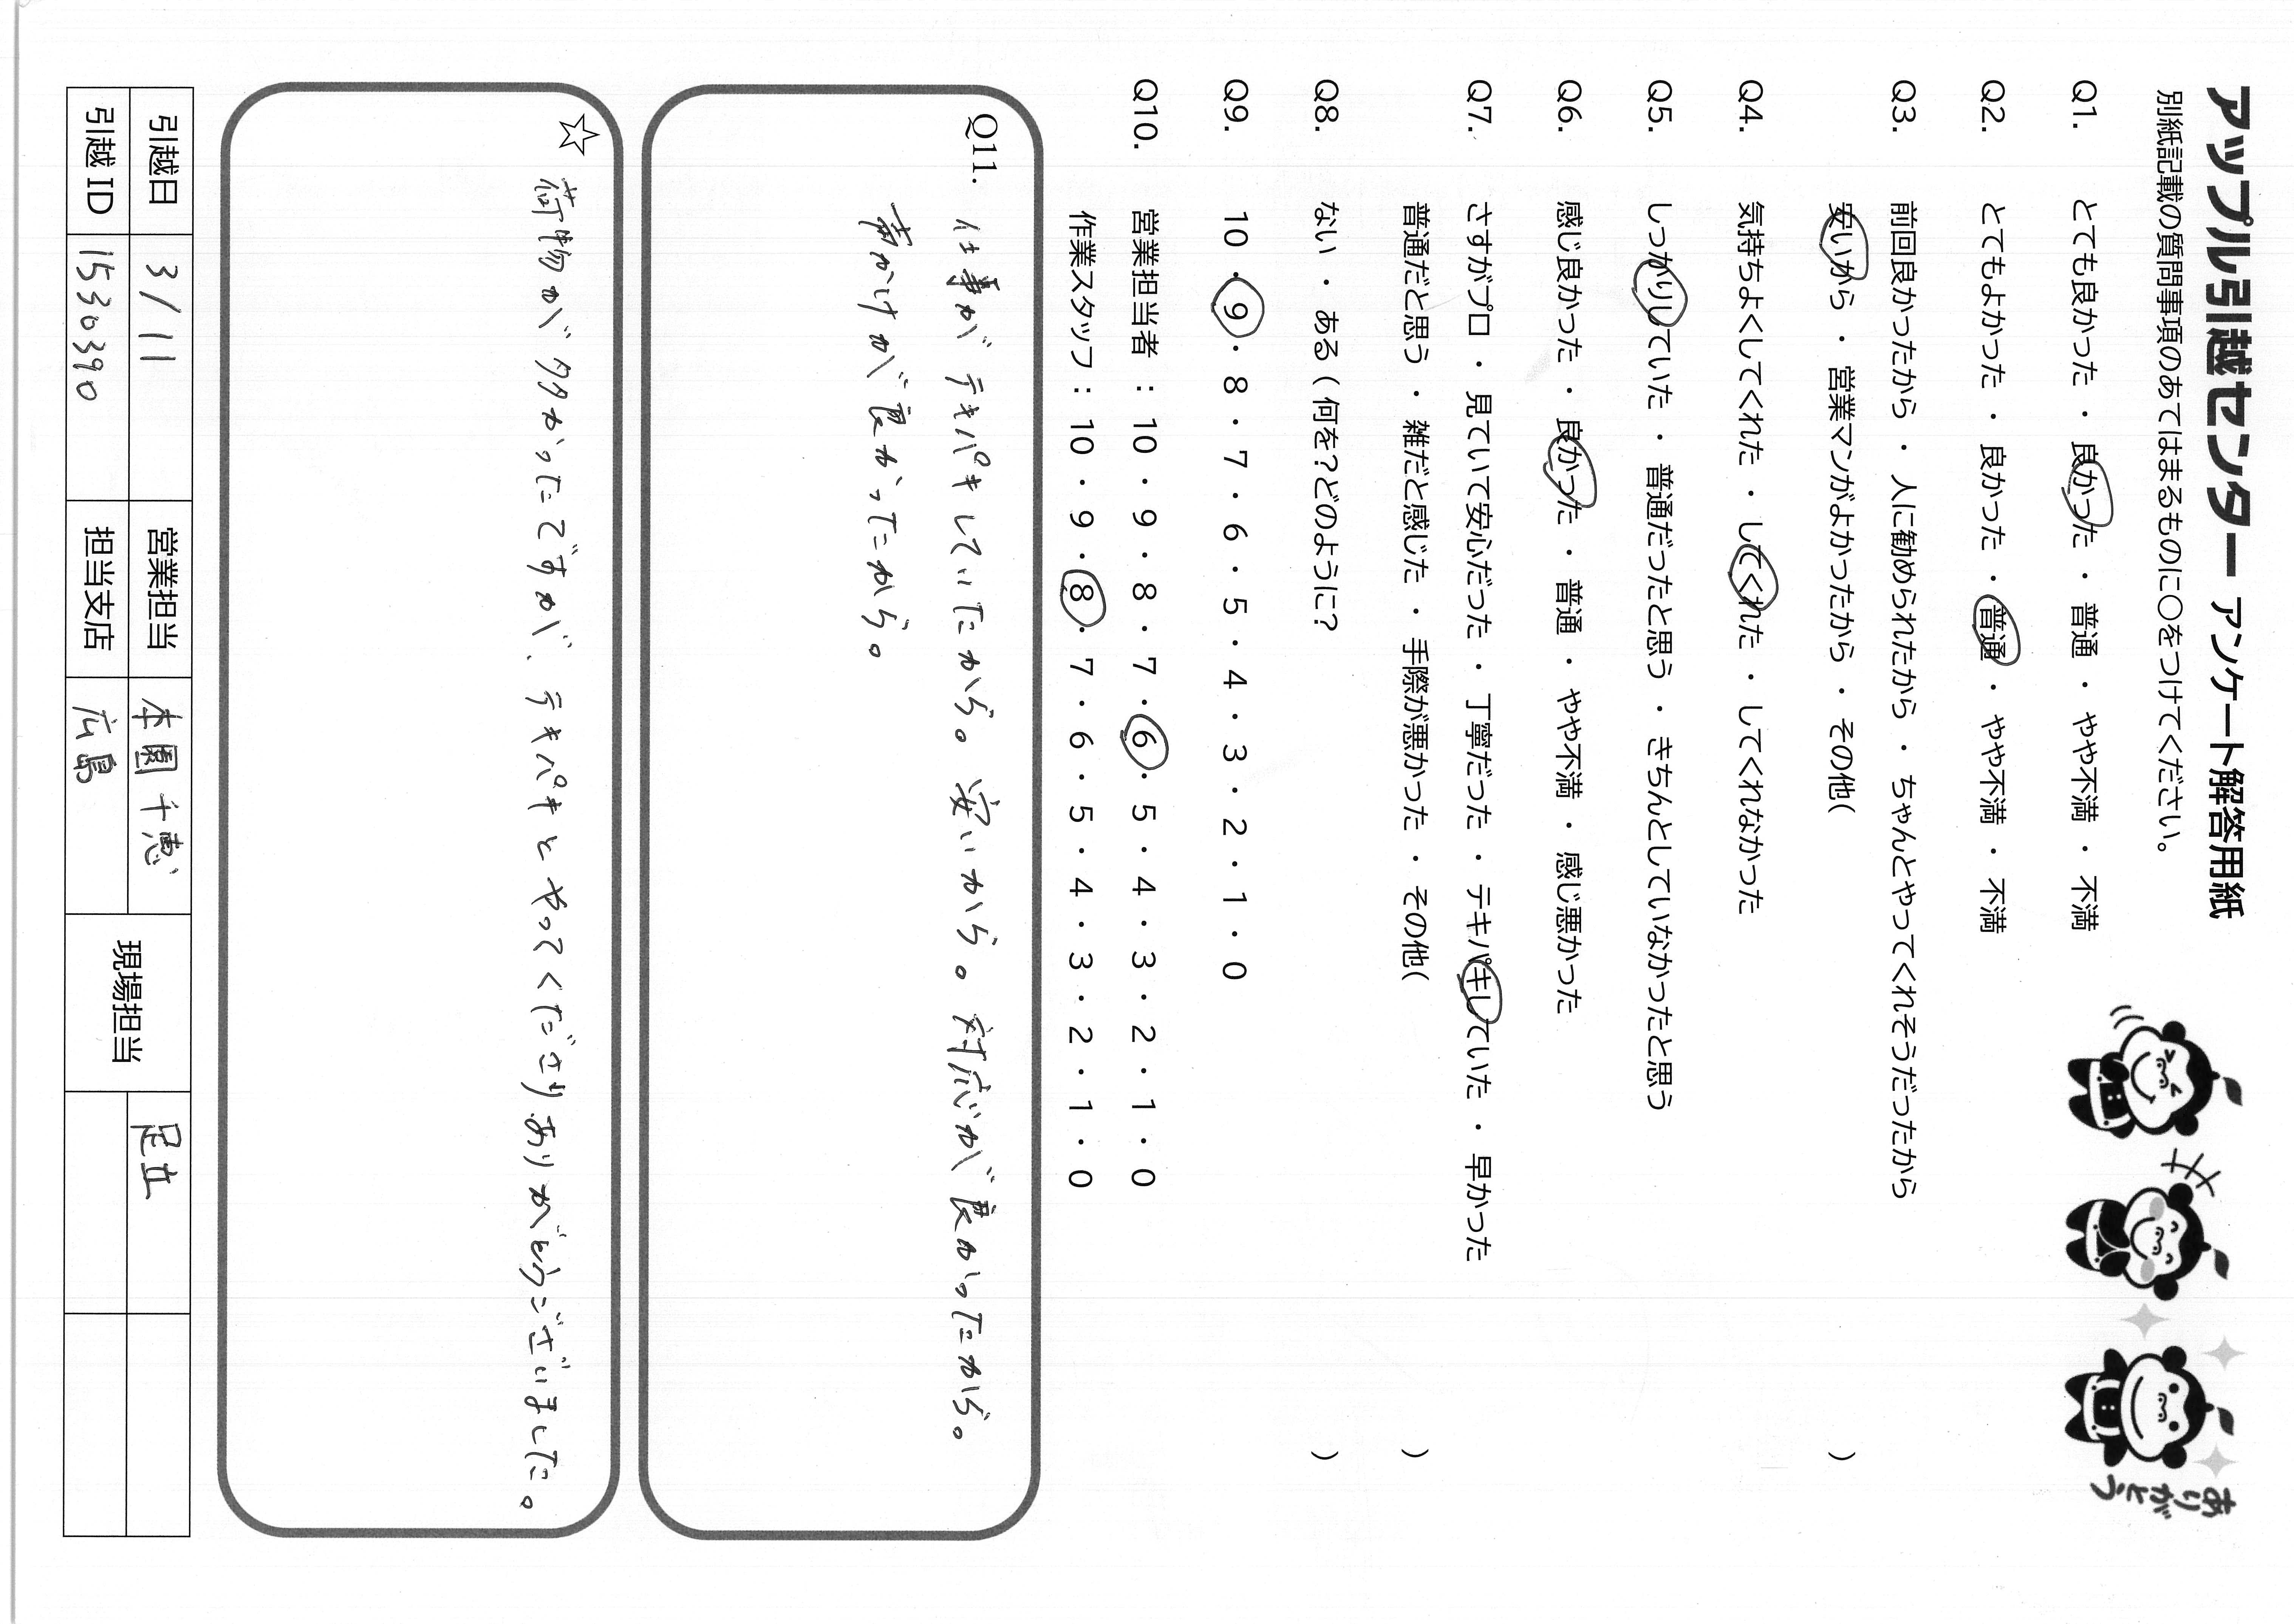 アップル引越センター アンケート解答用紙
別紙記載の質問事項のあてはまるものに〇をつけてください。
ありがとう
Q1. とても良かった ・ 良かった ・ 普通 ・ やや不満 ・ 不満
Q2. とてもよかった ・ 良かった ・ 普通 ・ やや不満 ・ 不満
Q3. 前回良かったから ・ 人に勧められたから ・ ちゃんとやってくれそうだったから
安いから ・ 営業マンがよかったから ・ その他( )
Q4. 気持ちよくしてくれた ・ してくれた ・ してくれなかった
Q5. しっかりしていた ・ 普通だったと思う ・ きちんとしていなかったと思う
Q6. 感じ良かった ・ 良かった ・ 普通 ・ やや不満 ・ 感じ悪かった
Q7. さすがプロ ・ 見ていて安心だった ・ 丁寧だった ・ テキパキしていた ・ 早かった
普通だと思う ・ 雑だと感じた ・ 手際が悪かった ・ その他( )
Q8. ない ・ ある ( 何を?どのように? )
Q9. 10 ・ 9 ・ 8 ・ 7 ・ 6 ・ 5 ・ 4 ・ 3 ・ 2 ・ 1 ・ 0
Q10. 営業担当者 : 10 ・ 9 ・ 8 ・ 7 ・ 6 ・ 5 ・ 4 ・ 3 ・ 2 ・ 1 ・ 0
作業スタッフ : 10 ・ 9 ・ 8 ・ 7 ・ 6 ・ 5 ・ 4 ・ 3 ・ 2 ・ 1 ・ 0
Q11. 仕事が テキパキしていたから。 安いから。 対応が良かったから。
声かけが良かったから。
☆ 荷物が多かったですが、テキパキとやってくださりありがとうございました。
引越日 3/11 営業担当 本園 千恵 現場担当 足立
引越 ID 1530390 担当支店 広島